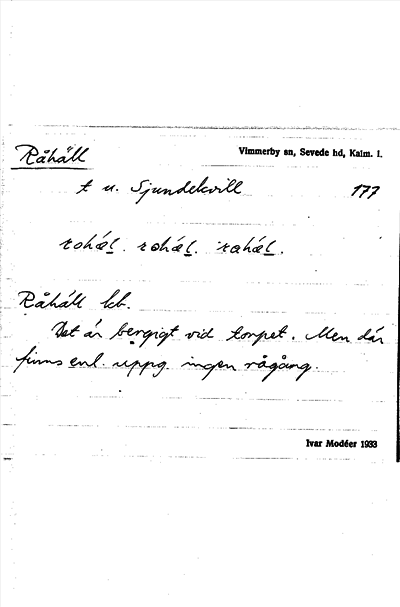 Råhäll
Vimmerby sn, Sevede hd, Kalm. l.
t u. Sjundekvill 177
rohæl. rohæl. rahæl.
Råhäll kb.
Det är bergigt vid torpet. Men där
finns enl. uppg. ingen rågång.
Ivar Modéer 1933